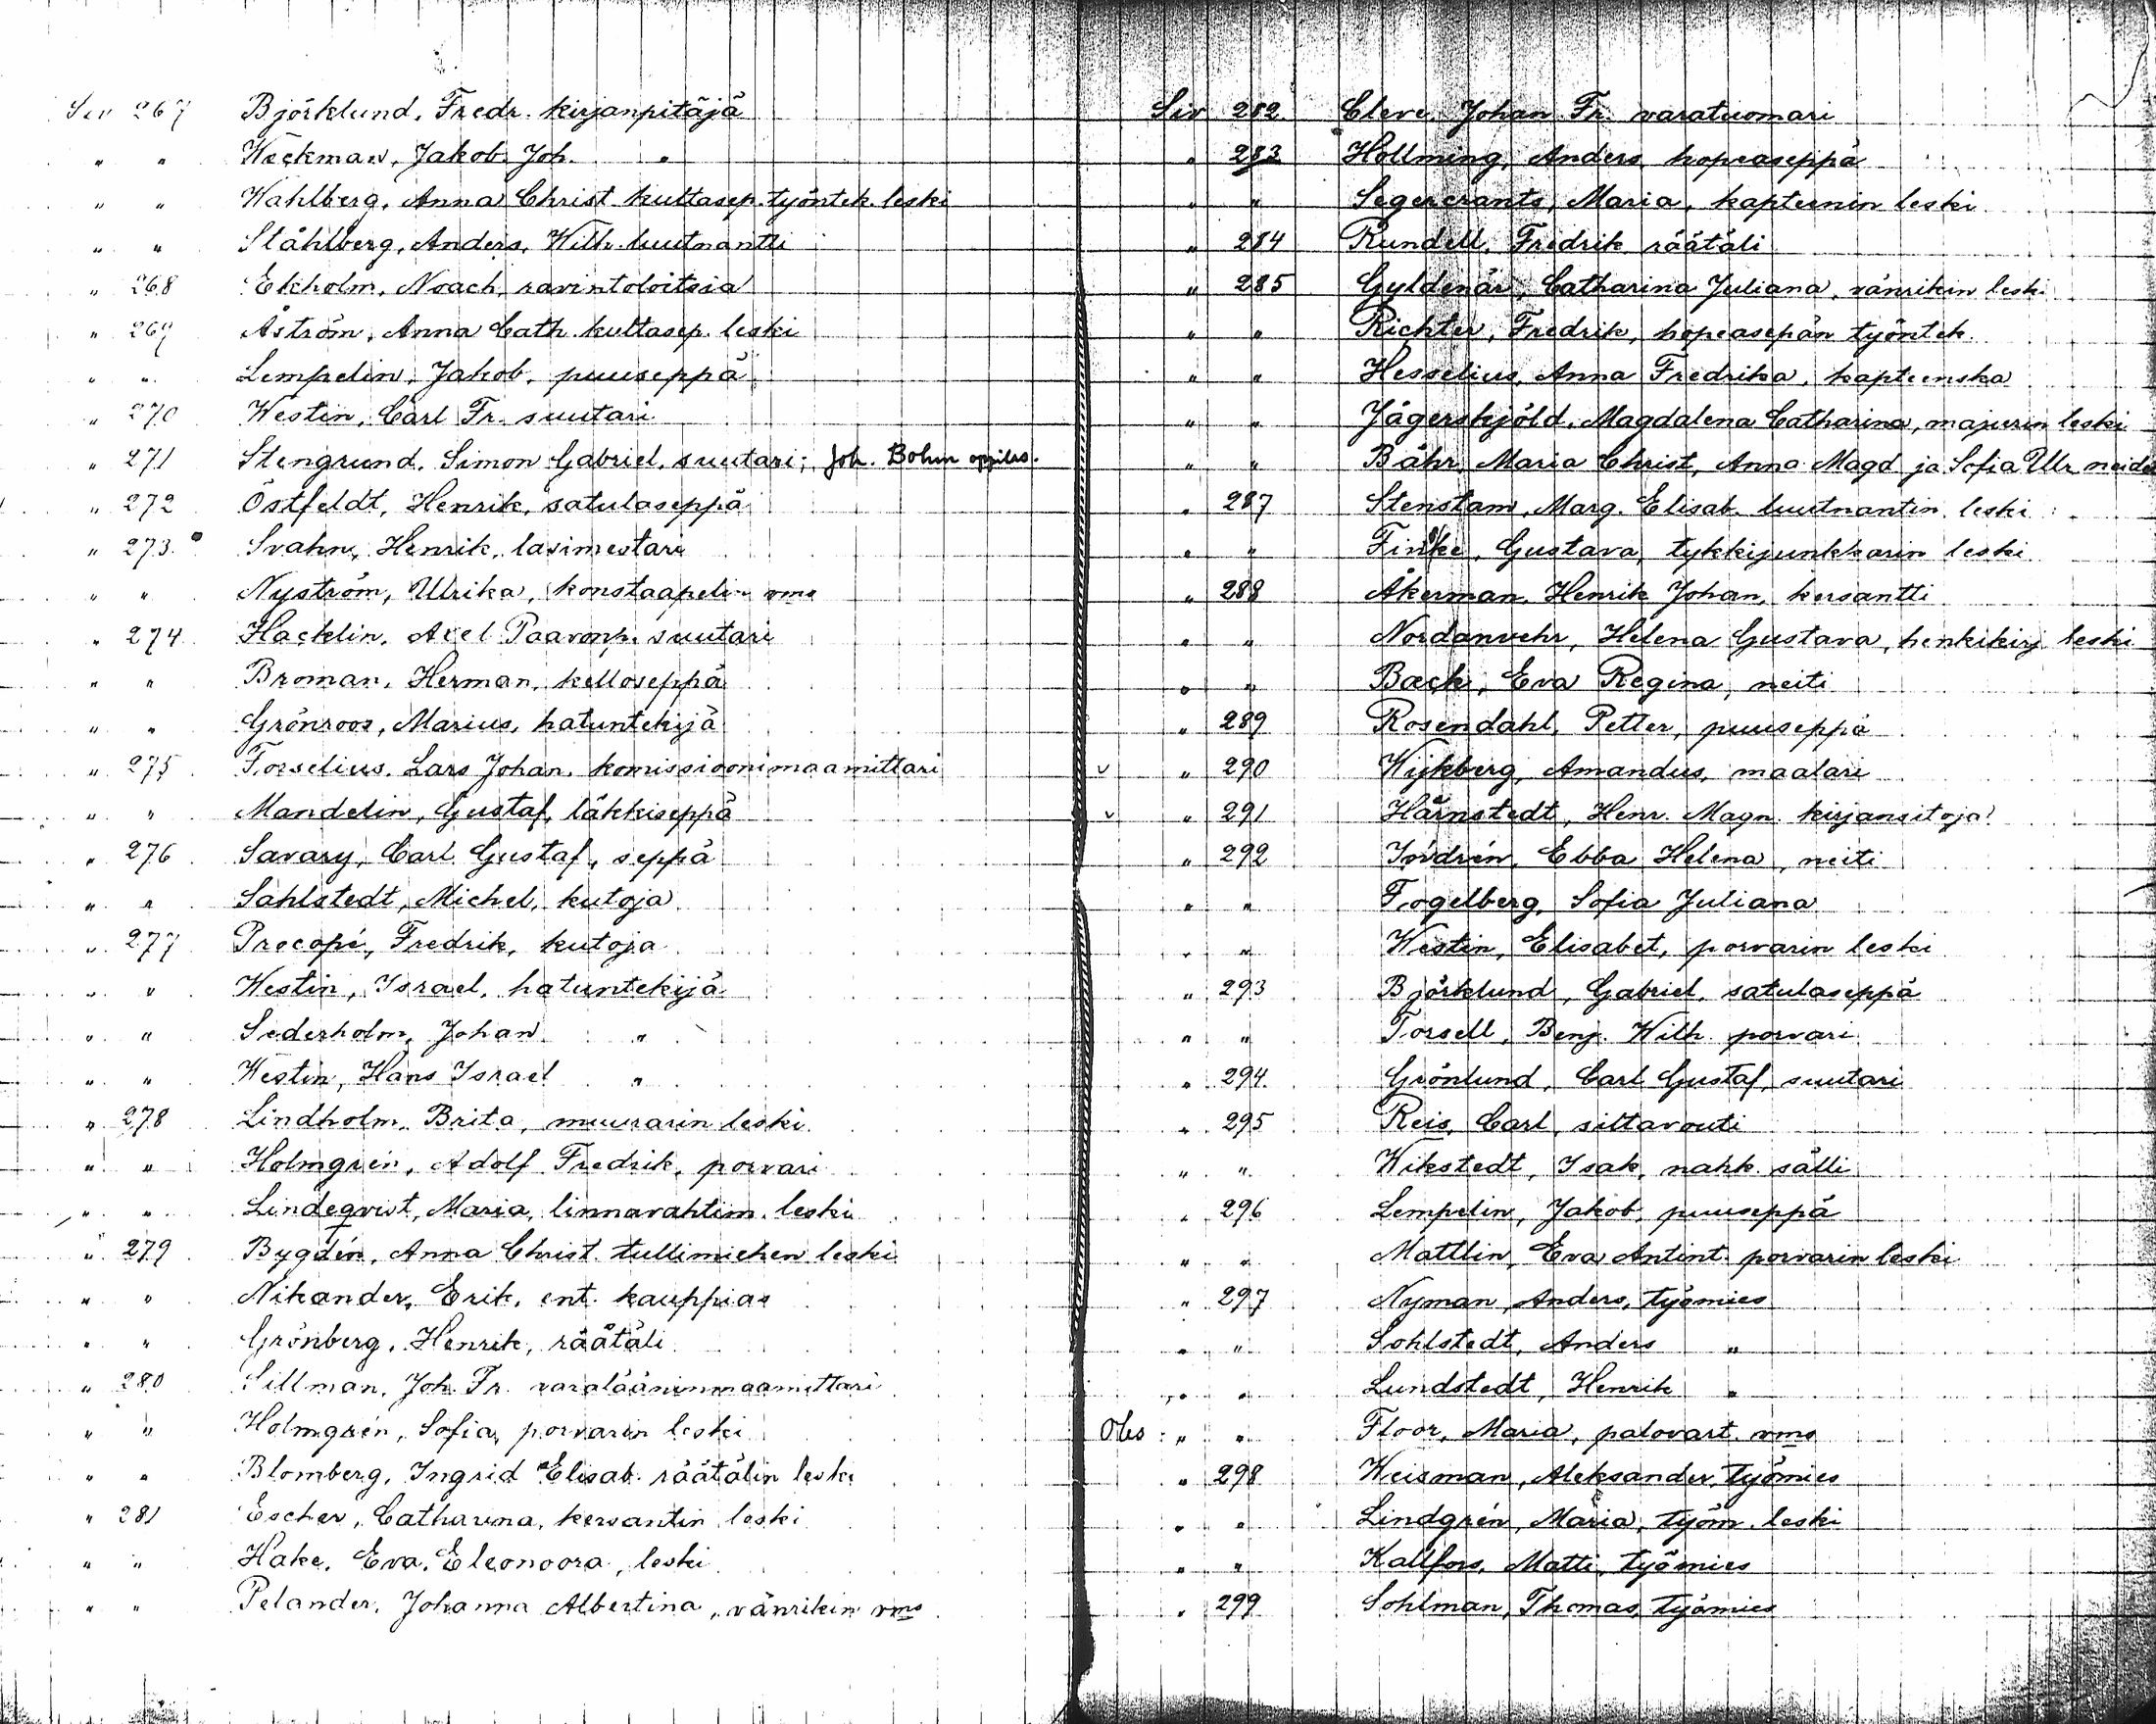 Siv 267 Björklund, Fredr. kirjanpitäjä
" " Weckman, Jakob Joh. "
" " Wahlberg, Anna Christ. kultasep. työntek. leski
" " Ståhlberg, Anders, Wilh. luutnantti
" 268 Ekholm, Noach, ravintoloitsia
" 269 Åström, Anna Cath. kultasep. leski
" " Lempelin, Jakob, puuseppä
" 270 Westin, Carl Fr. suutari
" 271 Stengrund, Simon Gabriel, suutari; Joh. Bohm oppilas.
" 272 Östfeldt, Henrik, satulaseppä
" 273 Svahn, Henrik, lasimestari
" " Nyström, Ulrika, konstaapelin vmo
" 274 Hacklin, Axel Paavonp. suutari
" " Broman, Herman, kelloseppä
" " Grönroos, Marius, hatuntekijä
" 275 Forselius, Lars Johan, komissioonimaamittari
" " Mandelin, Gustaf, läkkiseppä
" 276 Savary, Carl Gustaf, seppä
" " Sahlstedt, Michel, kutoja
" 277 Procopé, Fredrik, kutoja
" " Westin, Israel, hatuntekijä
" " Sederholm, Johan "
" " Westin, Hans Israel "
" 278 Lindholm, Brita, muurarin leski
" " Holmgrén, Adolf Fredrik, porvari
" " Lindeqvist, Maria, linnavahtim. leski
" 279 Bygdén, Anna Christ. tullimiehen leski
" " Nikander, Erik, ent. kauppias
" " Grönberg, Henrik, räätäli
" 280 Sillman, Joh. Fr. varalääninmaamittari
" " Holmgrén, Sofia, porvarin leski
" " Blomberg, Ingrid Elisab. räätälin leski
" 281 Escher, Catharina, kersantin leski
" " Hake, Eva, Eleonoora, leski
" " Pelander, Johanna Albertina, vänrikin vmo
Siv 282 Cleve, Johan Fr. varatuomari
" 283 Hollming, Anders, hopeaseppä
" " Segercrants, Maria, kapteenin leski
" 284 Rundell, Fredrik, räätäli
" 285 Gyldenär, Catharina Juliana, vänrikin leski
" " Richter, Fredrik, hopeasepän työntek.
" " Hesselius, Anna Fredrika, kapteenska
" " Jägerskjöld, Magdalena Catharina, majurin leski
" " Båhr, Maria Christ, Anna Magd ja Sofia Ulr
" 287 Stenstam, Marg. Elisab. luutnantin leski
" " Finke, Gustava, tykkijunkkarin leski
" 288 Åkerman, Henrik Johan, kersantti
" " Nordanvehr, Helena Gustava, henkikirj leski
" " Bæck, Eva Regina, neiti
" 289 Rosendahl, Petter, puuseppä
v " 290 Wijkberg, Amandus, maalari
v " 291 Hårnstedt, Henr. Magn. kirjansitoja
" 292 Ebba Helena, neiti
" " Fogelberg, Sofia Juliana
" " Westin, Elisabet, porvarin leski
" 293 Björklund, Gabriel, satulaseppä
" " Torsell, Benj. Wilh. porvari
" 294 Grönlund, Carl Gustaf, suutari
" 295 Reis, Carl, siltavouti
" " Wikstedt, Isak, nahk. sälli
" 296 Lempelin, Jakob, puuseppä
" " Mattlin, Eva Antint. porvarin leski
" 297 Nyman, Anders, työmies
" " Sohlstedt, Anders "
" " Lundstedt, Henrik "
" " Floor, Maria, palovart. vmo
" 298 Weisman, Aleksander, työmies
" " Lindgrén, Maria, työm. leski
" " Kallfors, Matti, työmies
" 299 Sohlman, Thomas, työmies